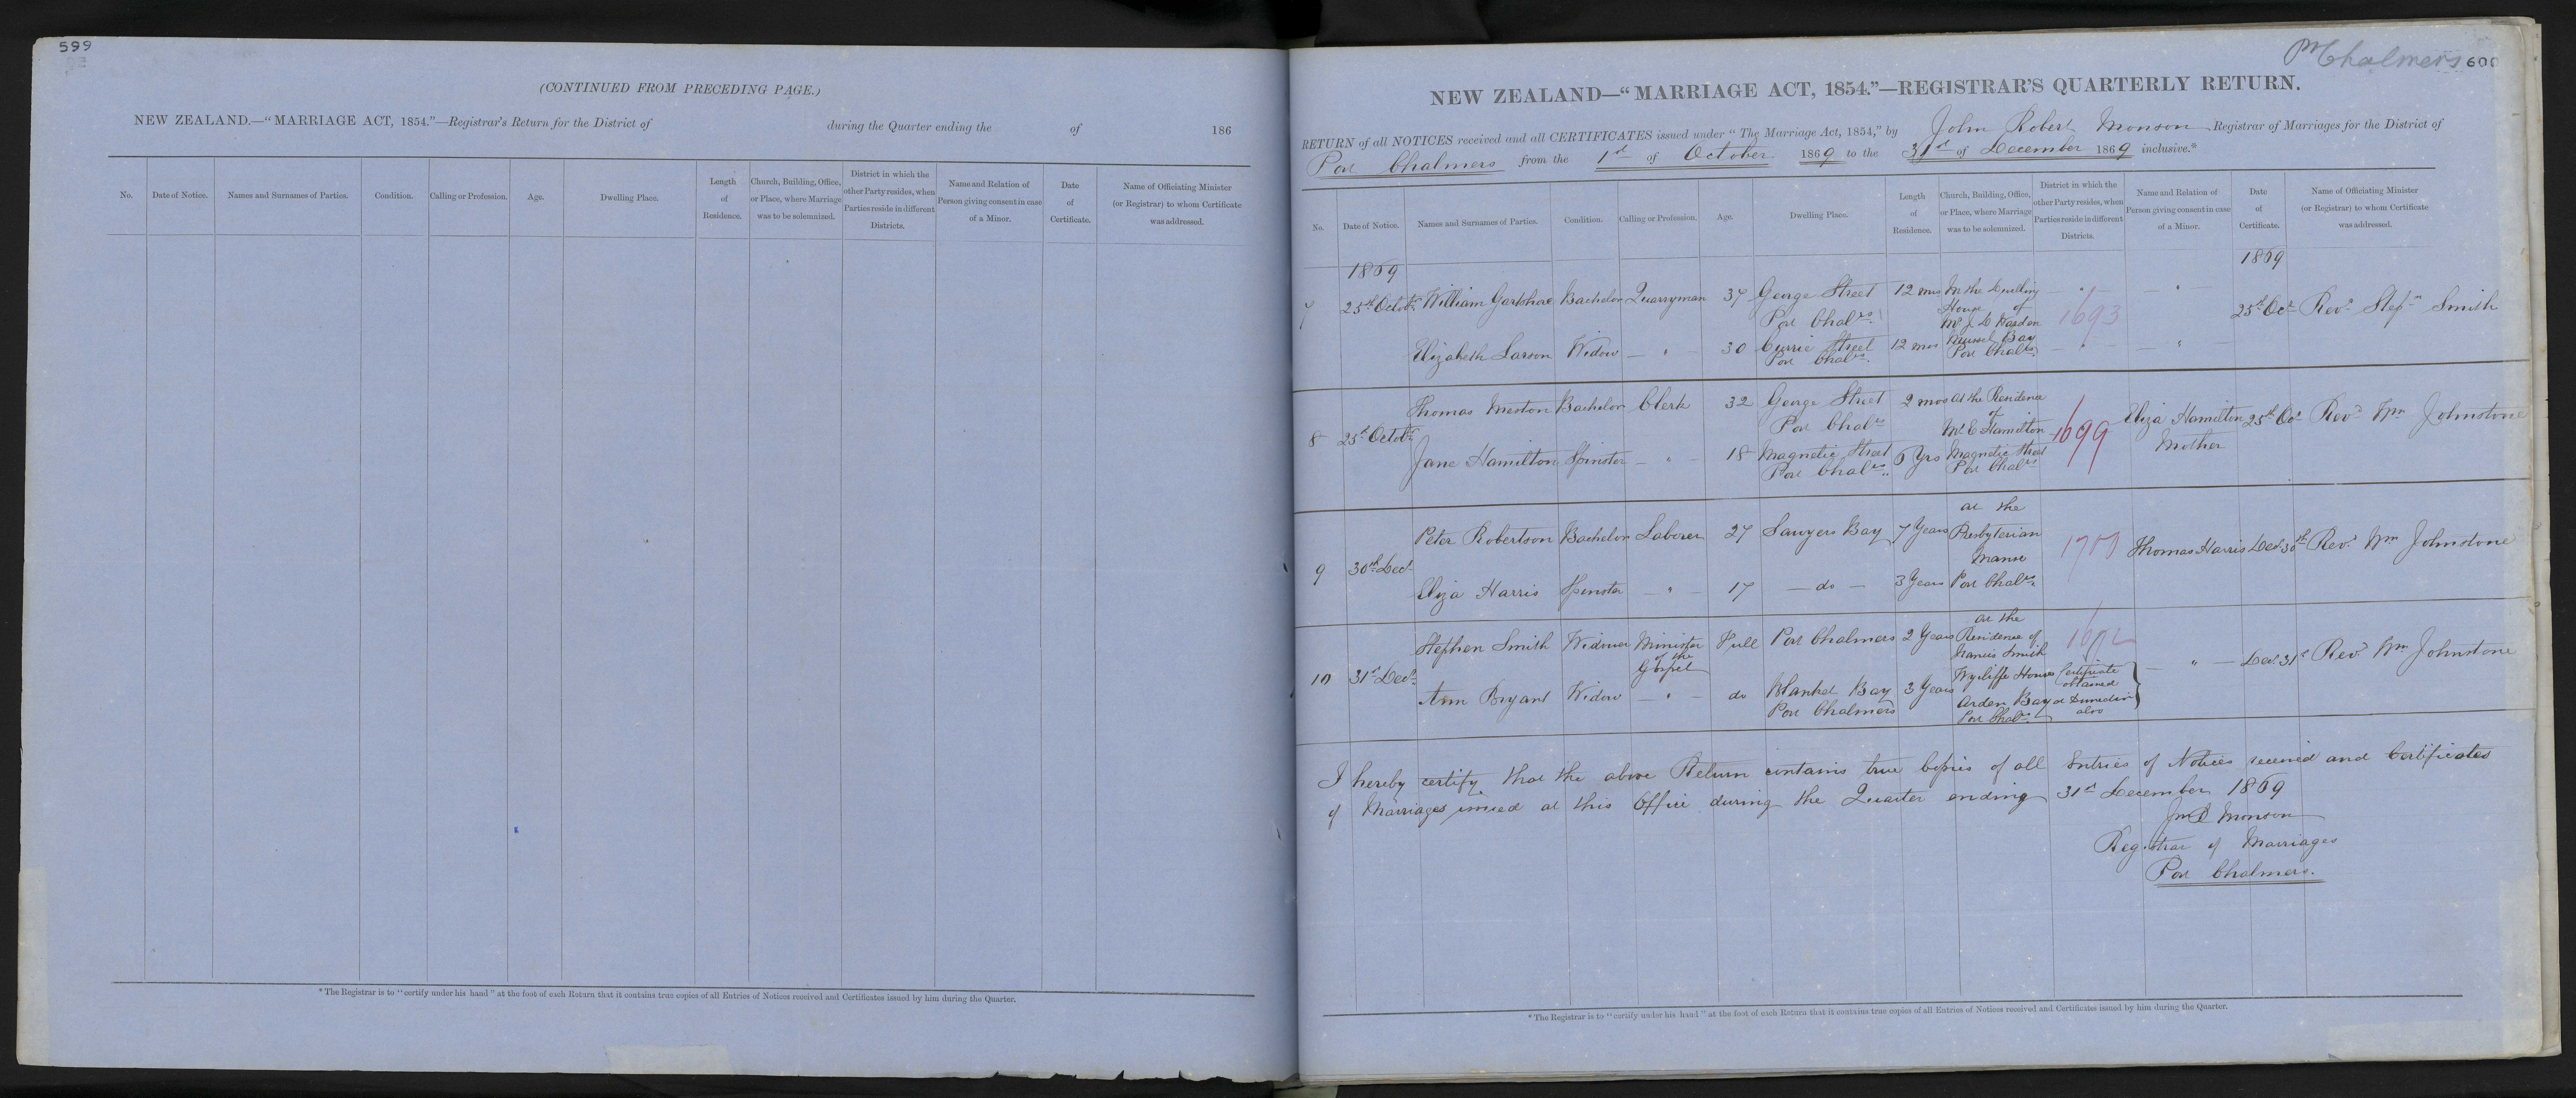 599
(CONTINUED FROM PRECEDING PAGE.)
NEW ZEALAND.—"MARRIAGE ACT, 1854."—Registrar's Return for the District of during the Quarter ending the of 186
No. Date of Notice. Names and Surnames of Parties. Condition. Calling or Profession. Age. Dwelling Place. Length of Residence. Church, Building, Office, or Place, where Marriage was to be solemnized. District in which the other Party resides, when Parties reside in different Districts. Name and Relation of Person giving consent in case of a Minor. Date of Certificate. Name of Officiating Minister (or Registrar) to whom Certificate was addressed.
* The Registrar is to "certify under his hand" at the foot of each Return that it contains true copies of all Entries of Notices received and Certificates issued by him during the Quarter.
Pt Chalmers 600
NEW ZEALAND—"MARRIAGE ACT, 1854."—REGISTRAR'S QUARTERLY RETURN.
RETURN of all NOTICES received and all CERTIFICATES issued under "The Marriage Act, 1854," by John Robert Monson Registrar of Marriages for the District of
Port Chalmers from the 1st of October 1869 to the 31st of December 1869 inclusive.*
No. Date of Notice. Names and Surnames of Parties. Condition. Calling or Profession. Age. Dwelling Place. Length of Residence. Church, Building, Office, or Place, where Marriage was to be solemnized. District in which the other Party resides, when Parties reside in different Districts. Name and Relation of Person giving consent in case of a Minor. Date of Certificate. Name of Officiating Minister (or Registrar) to whom Certificate was addressed.
1869 1869
7 25th Octobr William Gartshae Bachelor Quarryman 37 George Street Port Chalrs 12 mos In the Dwelling House of Mr J. D Harden Mussel Bay Port Chalrs 1693 25th Oct Revd Stepn Smith
Elizabeth Larson Widow — " — 30 Currie Street Port Chalrs 12 mos — " — — " —
8 25th Octobr Thomas Meston Bachelor Clerk 32 George Street Port Chalrs 2 mos At the Residence of Mr C Hamilton Magnetic Street Port Chalrs 1699 Eliza Hamilton Mother 25th Oct Revd Wm Johnstone
Jane Hamilton Spinster — " — 18 Magnetic Street Port Chalrs 6 Yrs
9 30th Decr Peter Robertson Bachelor Laborer 27 Sawyers Bay 7 Years at the Presbyterian Manse Port Chalrs Thomas Harris Decr 30th Revd Wm Johnstone
Eliza Harris Spinster — " — 17 — do — 3 Years
10 31st Decr Stephen Smith Widower Minister of the Gospel Full Port Chalmers 2 Years at the Residence of Francis Smith Wycliffe House Arden Bay Port Chalrs Certificate obtained at Dunedin also — " — Decr 31st Revd Wm Johnstone
Ann Bryant Widow — " — do Blanket Bay Port Chalmers 3 Years
I hereby certify that the above Return contains true Copies of all Entries of Notices received and Certificates
of Marriages issued at this Office during the Quarter ending 31st December 1869
Jno R Monson
Registrar of Marriages
Port Chalmers.
* The Registrar is to "certify under his hand" at the foot of each Return that it contains true copies of all Entries of Notices received and Certificates issued by him during the Quarter.